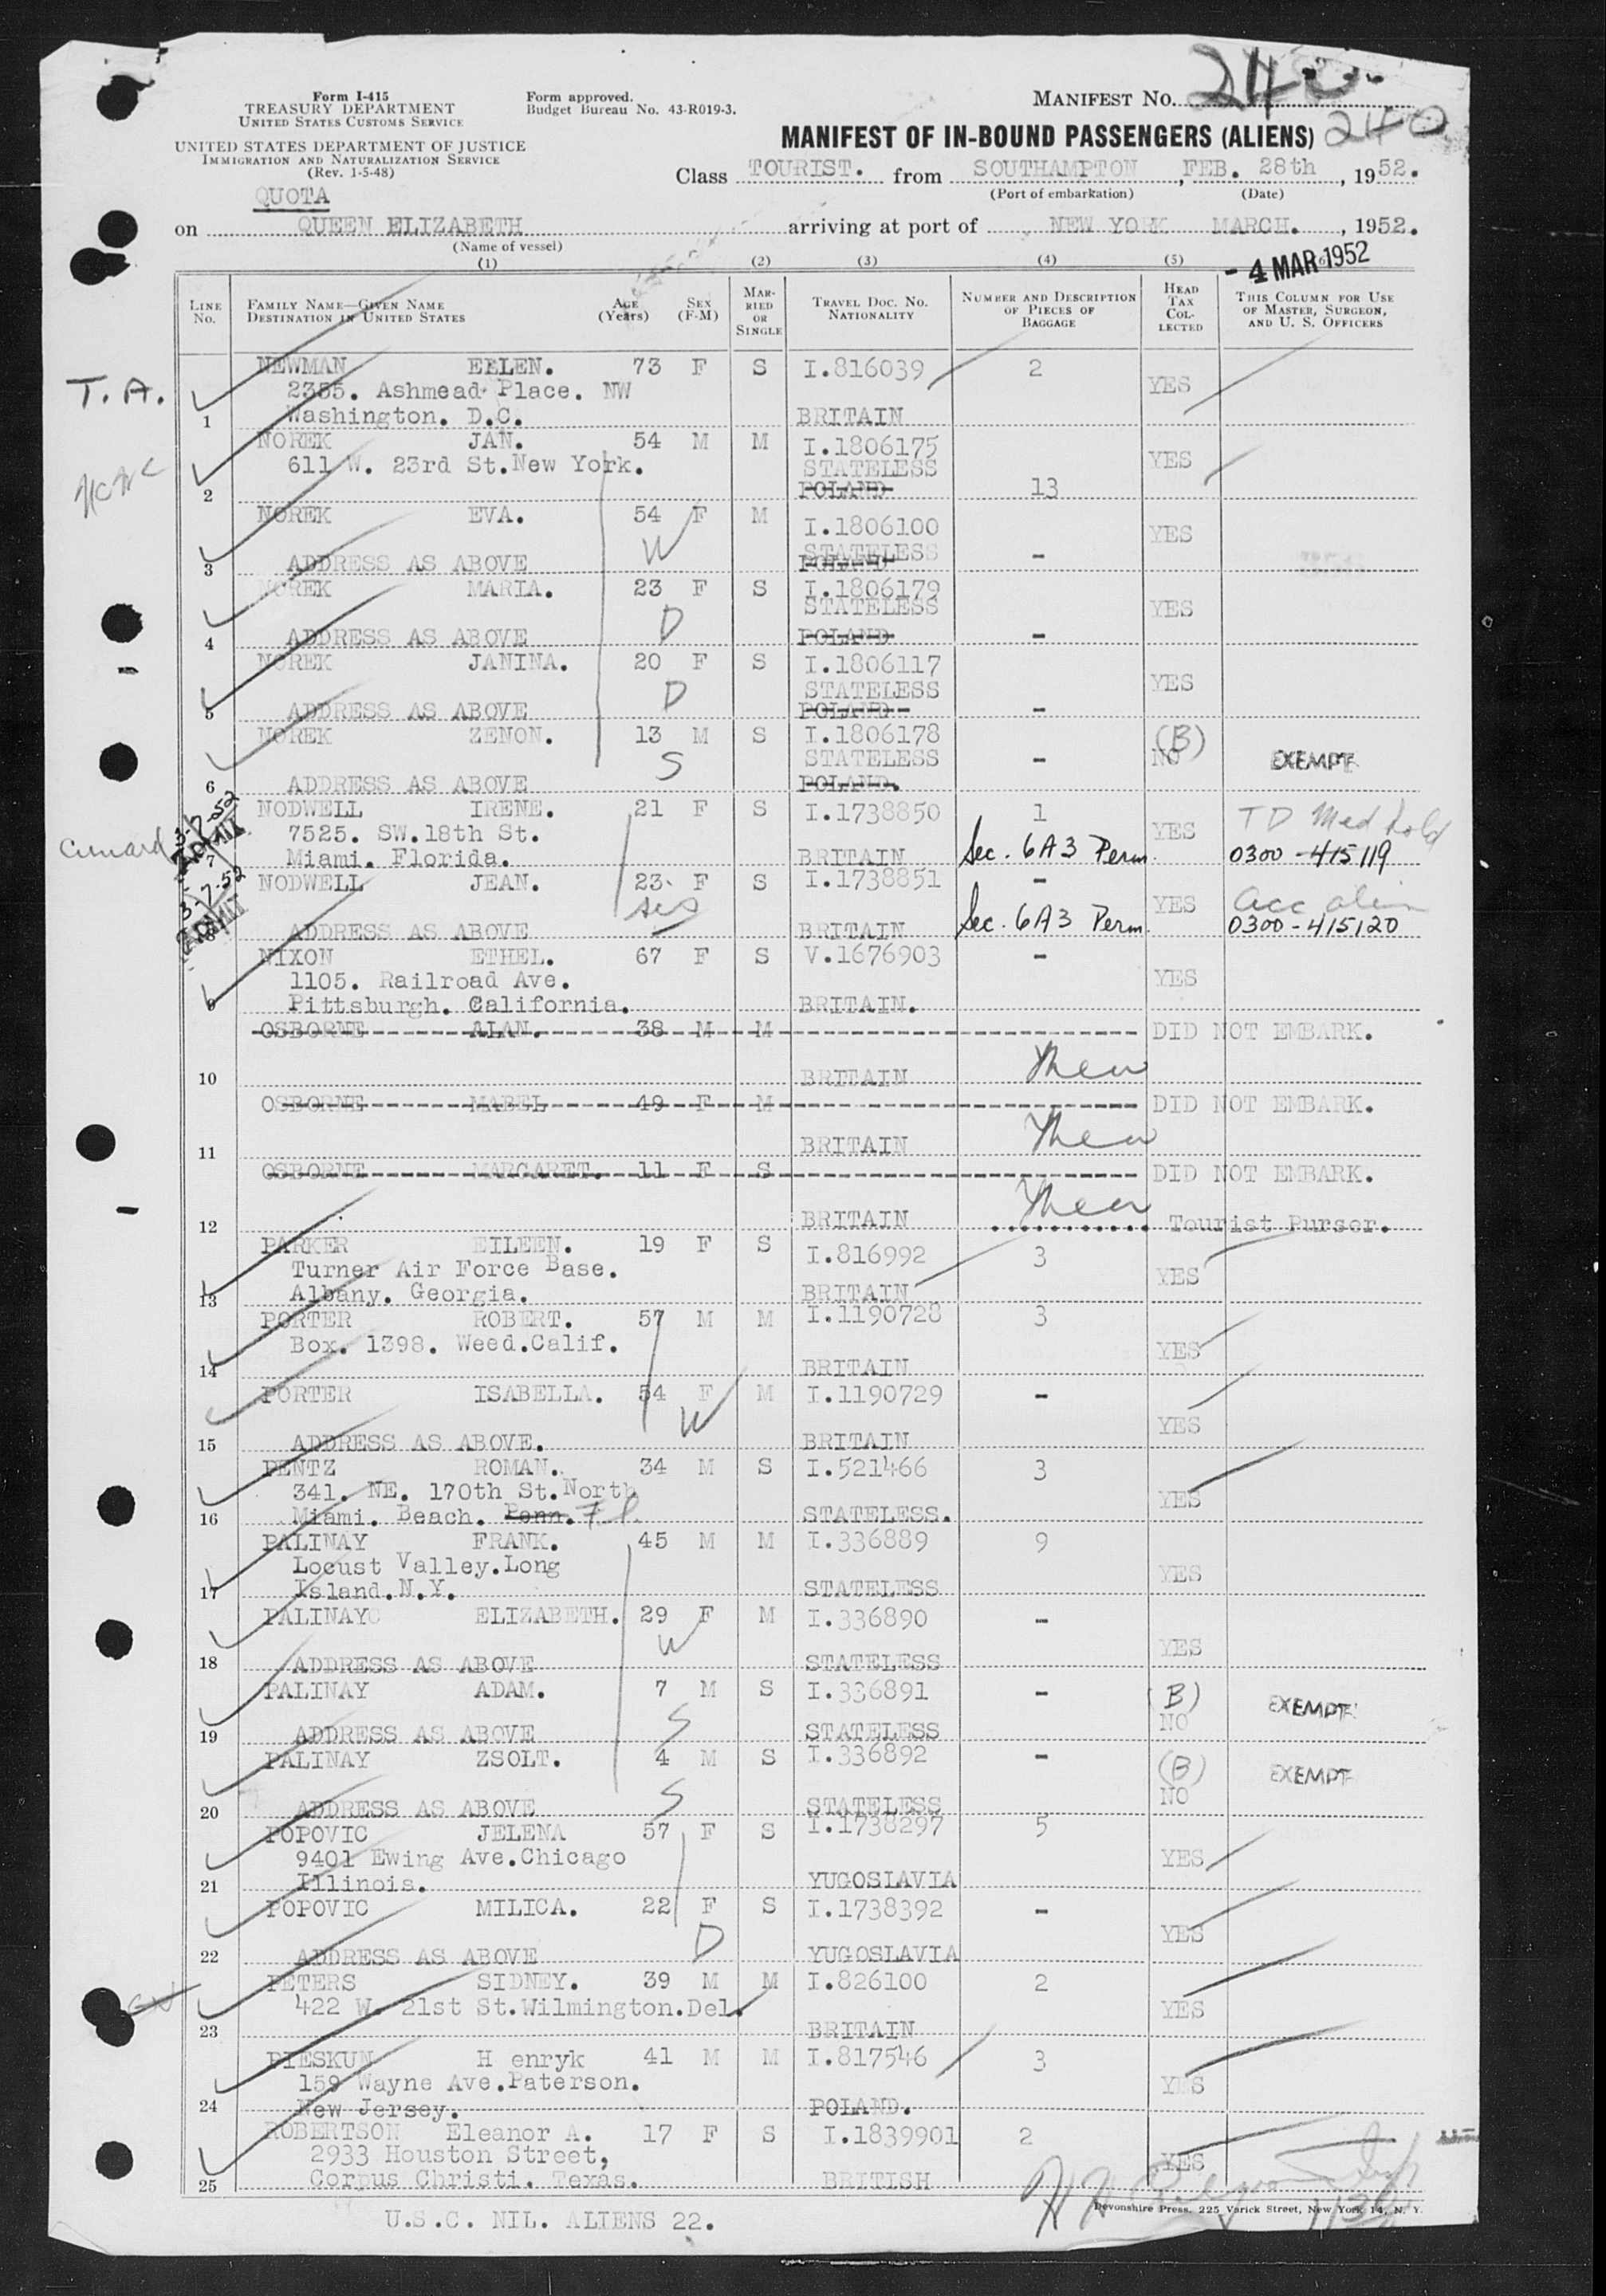 Form I-415
TREASURY DEPARTMENT
UNITED STATES CUSTOMS SERVICE
UNITED STATES DEPARTMENT OF JUSTICE
IMMIGRATION AND NATURALIZATION SERVICE
(Rev. 1-5-48)
Form approved.
Budget Bureau No. 43-R019-3.
MANIFEST NO. 240
MANIFEST OF IN-BOUND PASSENGERS (ALIENS) 240
Class TOURIST. from SOUTHAMPTON, FEB. 28th, 1952.
(Port of embarkation) (Date)
QUOTA
on QUEEN ELIZABETH arriving at port of NEW YORK MARCH., 1952.
(Name of vessel)
- 4 MAR 1952
(1) (2) (3) (4) (5)
LINE No. FAMILY NAME—GIVEN NAME DESTINATION IN UNITED STATES AGE (Years) SEX (F-M) MARRIED OR SINGLE TRAVEL DOC. NO. NATIONALITY NUMBER AND DESCRIPTION OF PIECES OF BAGGAGE HEAD TAX COLLECTED THIS COLUMN FOR USE OF MASTER, SURGEON, AND U. S. OFFICERS
NEWMAN ELLEN. 73 F S I.816039 2
T.A. 2355. Ashmead Place. NW YES
1 Washington. D.C. BRITAIN
NOREK JAN. 54 M M I.1806175
611 W. 23rd St.New York. STATELESS YES
2 POLAND 13
NOREK EVA. 54 F M I.1806100 YES
W STATELESS
3 ADDRESS AS ABOVE POLAND -
NOREK MARIA. 23 F S I.1806179
D STATELESS YES
4 ADDRESS AS ABOVE POLAND -
NOREK JANINA. 20 F S I.1806117
D STATELESS YES
5 ADDRESS AS ABOVE POLAND -
NOREK ZENON. 13 M S I.1806178 (B)
S STATELESS - NO EXEMPT
6 ADDRESS AS ABOVE POLAND.
NODWELL IRENE. 21 F S I.1738850 1 TD Med hold
Cunard 3-7-52 ADMIT 7525. SW.18th St. YES
7 Miami. Florida. BRITAIN Sec. 6A3 Perm. 0300-415119
NODWELL JEAN. 23 F S I.1738851 -
3-7-52 ADMIT sis YES Acc alien
8 ADDRESS AS ABOVE BRITAIN Sec. 6A3 Perm. 0300-415120
NIXON ETHEL. 67 F S V.1676903 -
1105. Railroad Ave. YES
9 Pittsburgh. California. BRITAIN.
OSBORNE ALAN. 38 M M DID NOT EMBARK.
10 BRITAIN
OSBORNE MABEL 49 F M DID NOT EMBARK.
11 BRITAIN
OSBORNE MARGARET. 11 F S DID NOT EMBARK.
12 BRITAIN Tourist Purser.
PARKER EILEEN. 19 F S I.816992 3
Turner Air Force Base. YES
13 Albany. Georgia. BRITAIN
PORTER ROBERT. 57 M M I.1190728 3
Box. 1398. Weed.Calif. YES
14 BRITAIN
PORTER ISABELLA. 54 F M I.1190729 -
W YES
15 ADDRESS AS ABOVE. BRITAIN
PENTZ ROMAN. 34 M S I.521466 3
341. NE. 170th St.North YES
16 Miami. Beach. Penn. Fl. STATELESS.
PALINAY FRANK. 45 M M I.336889 9
Locust Valley.Long YES
17 Island.N.Y. STATELESS
PALINAY ELIZABETH. 29 F M I.336890 -
W YES
18 ADDRESS AS ABOVE STATELESS
PALINAY ADAM. 7 M S I.336891 - (B) EXEMPT
S NO
19 ADDRESS AS ABOVE STATELESS
PALINAY ZSOLT. 4 M S I.336892 - (B) EXEMPT
S NO
20 ADDRESS AS ABOVE STATELESS
POPOVIC JELENA 57 F S I.1738297 5
9401 Ewing Ave.Chicago YES
21 Illinois. YUGOSLAVIA
POPOVIC MILICA. 22 F S I.1738392 -
D YES
22 ADDRESS AS ABOVE YUGOSLAVIA
PETERS SIDNEY. 39 M M I.826100 2
422 W. 21st St.Wilmington.Del. YES
23 BRITAIN
PIESKUN H enryk 41 M M I.817546 3
159 Wayne Ave.Paterson. YES
24 New Jersey. POLAND.
ROBERTSON Eleanor A. 17 F S I.1839901 2
2933 Houston Street, YES
25 Corpus Christi. Texas. BRITISH
Devonshire Press, 225 Varick Street, New York 14, N. Y.
U.S.C. NIL. ALIENS 22.